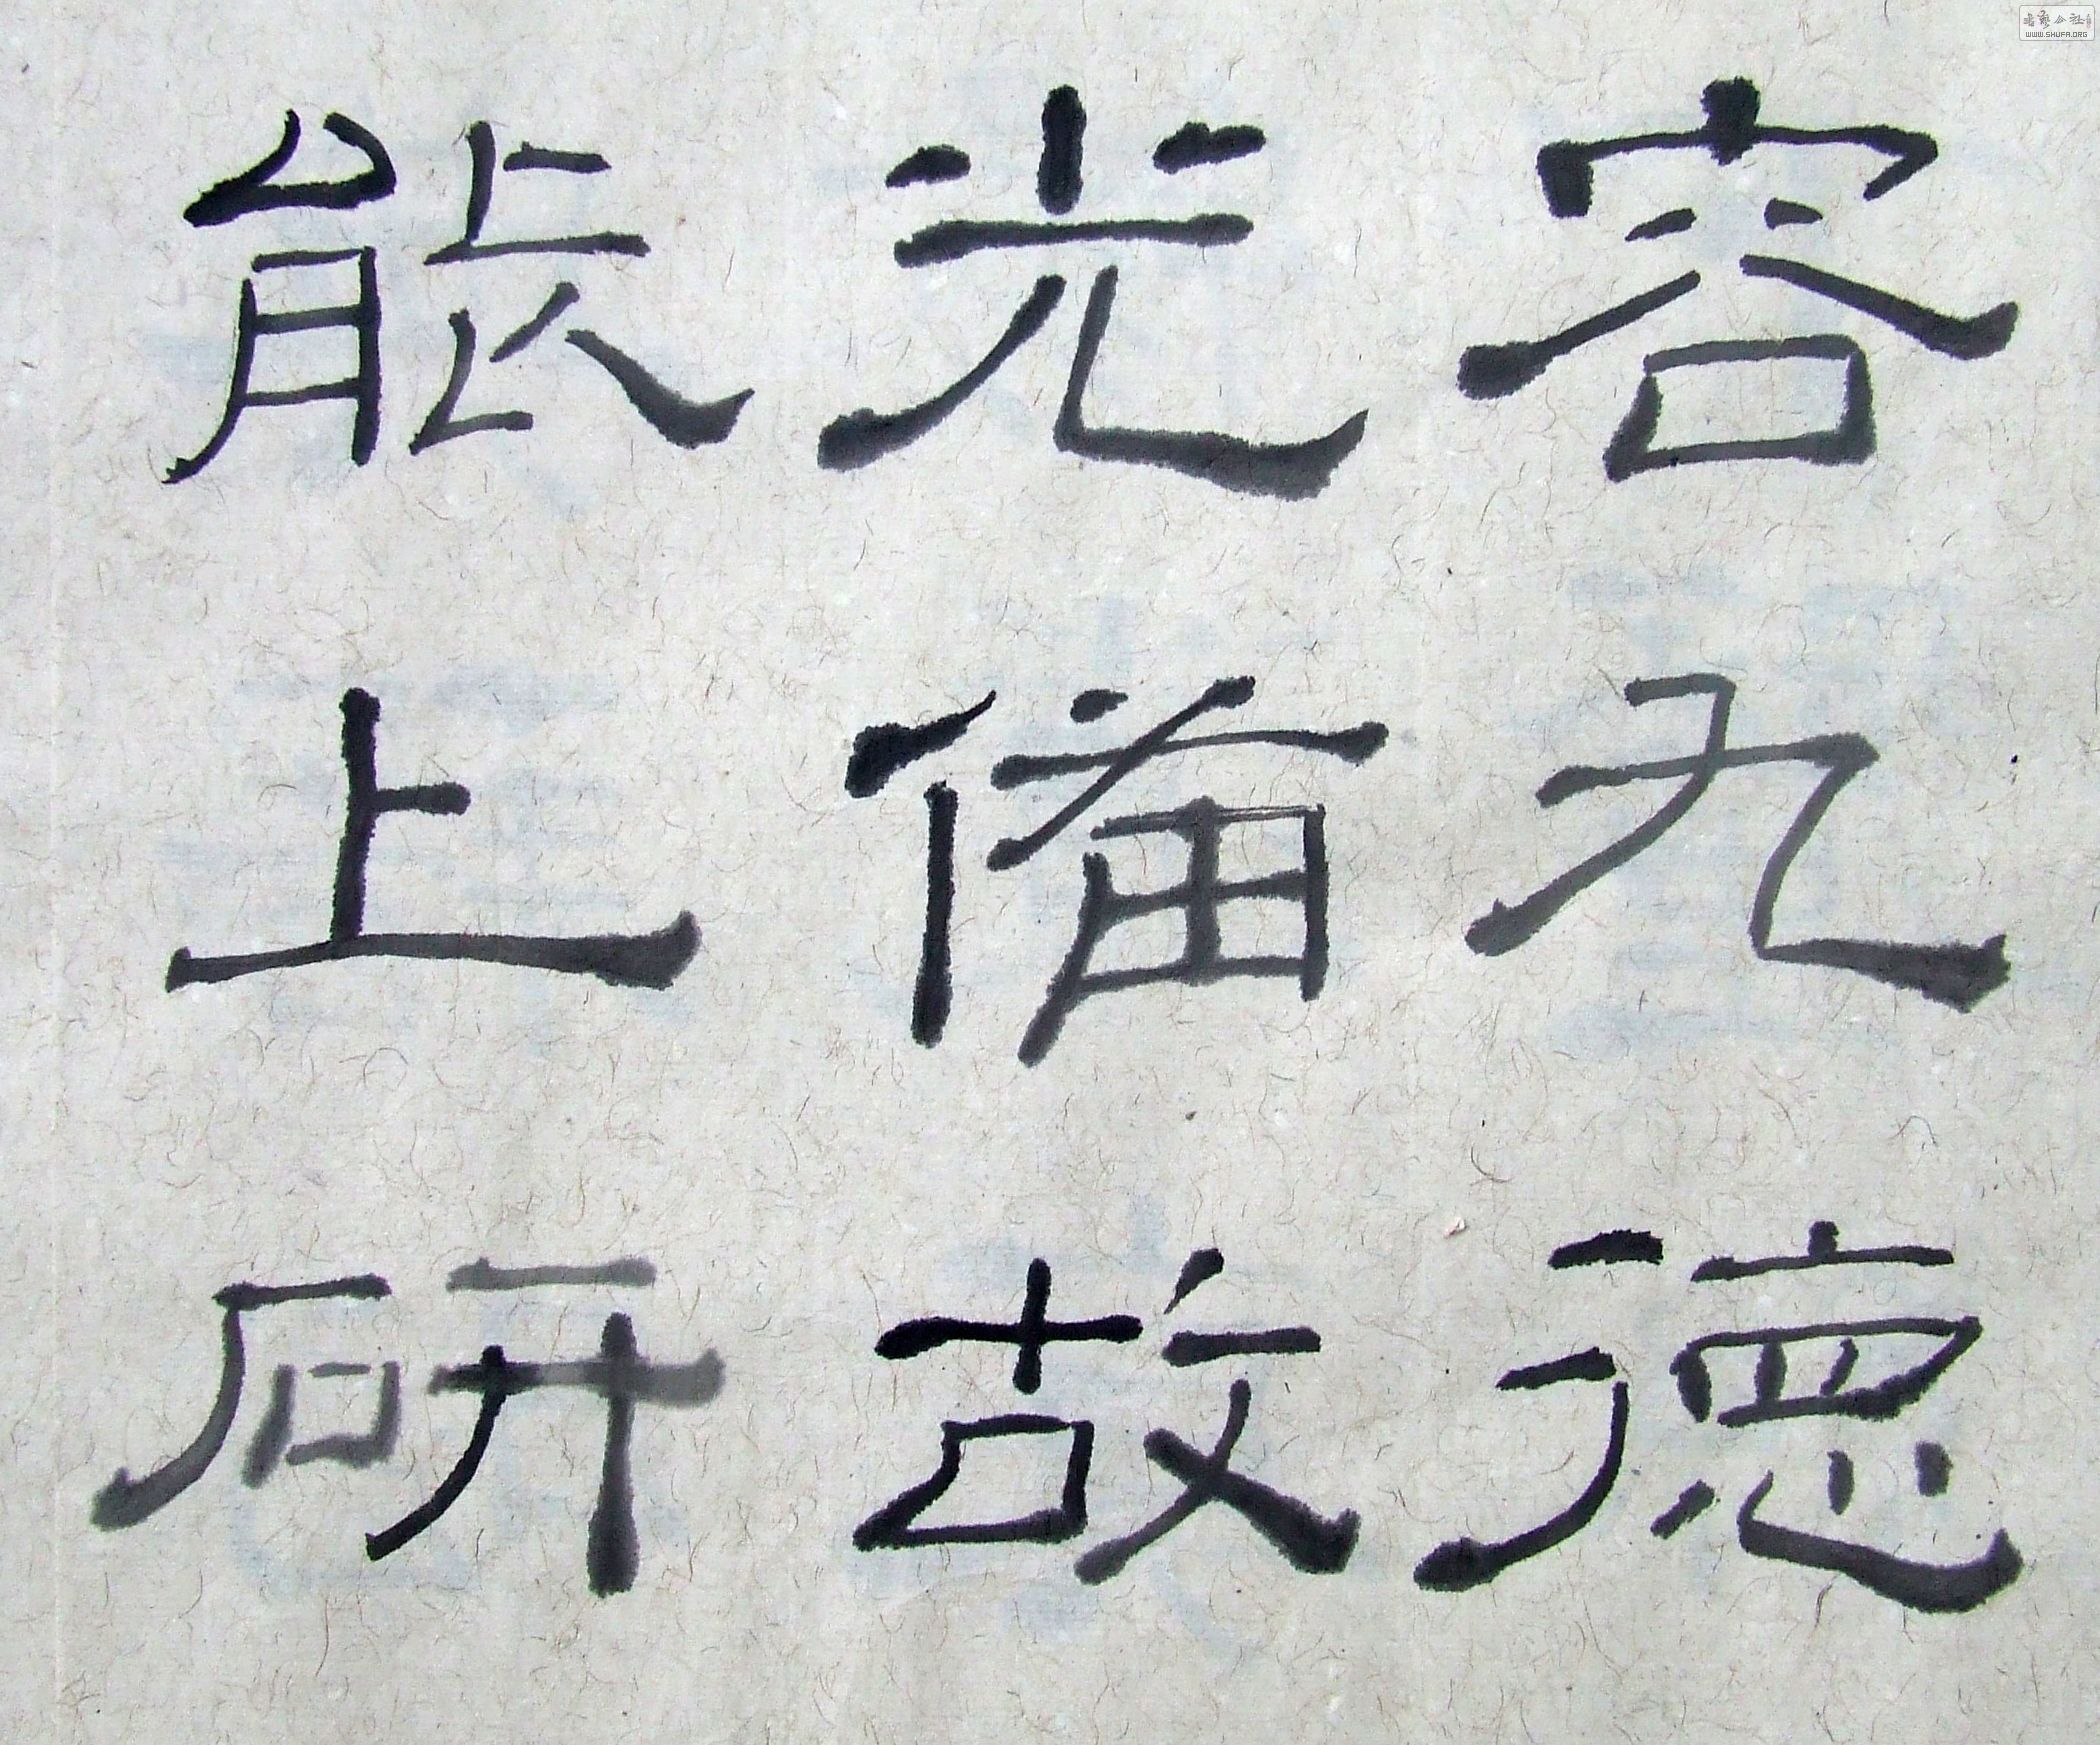 容九德
光備故
能上研
書藝公社
WWW.SHUFA.ORG